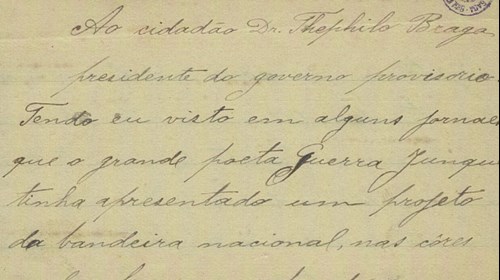 Ao cidadão Dr. Thephilo Braga
presidente do governo provisorio
Tendo eu visto em alguns jornaes
que o grande poeta Guerra Junqu
tinha apresentado um projeto
da bandeira nacional, nas côres